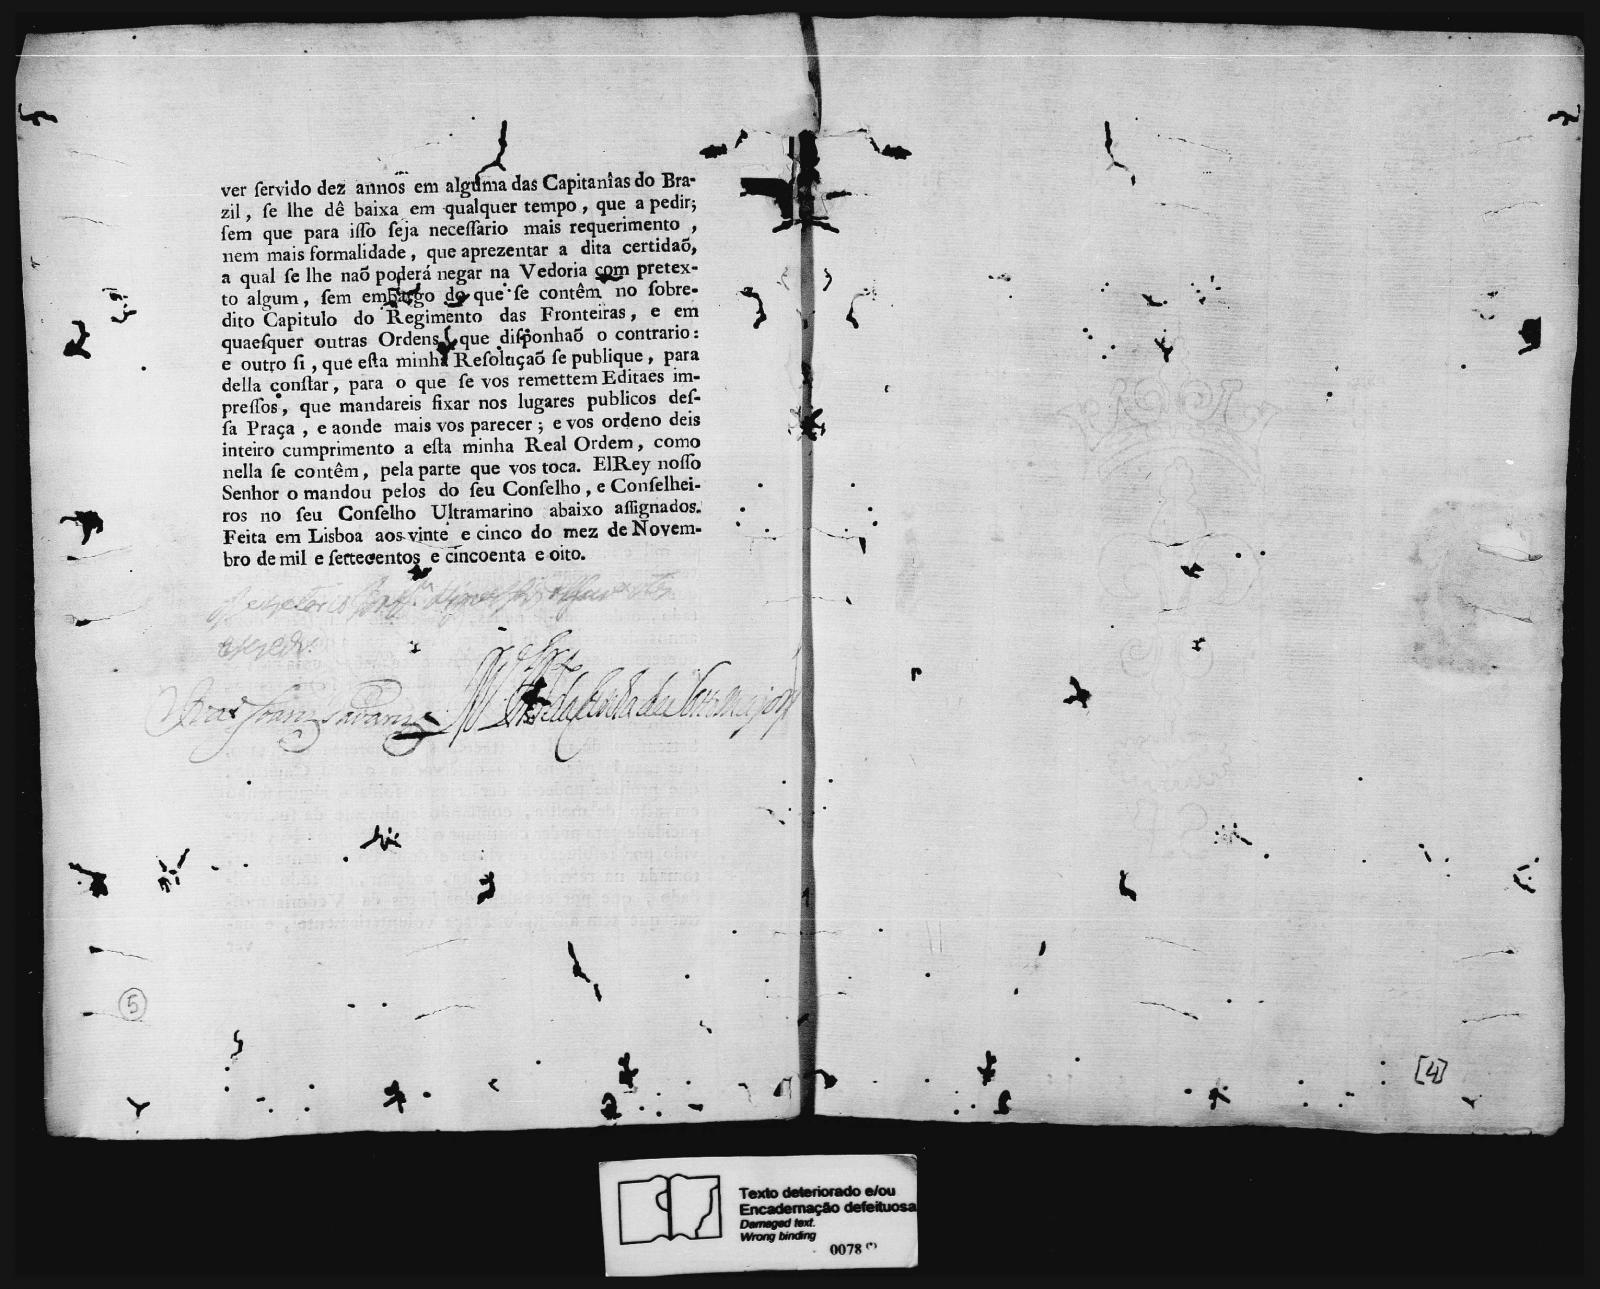 ver ſervido dez annos em alguma das Capitanîas do Bra-
zil, ſe lhe dê baixa em qualquer tempo, que a pedir;
ſem que para iſſo ſeja neceſſario mais requerimento,
nem mais formalidade, que aprezentar a dita certidaõ,
a qual ſe lhe naõ poderá negar na Vedoria com pretex-
to algum, ſem embargo do que ſe contêm no ſobre-
dito Capitulo do Regimento das Fronteiras, e em
quaeſquer outras Ordens, que diſponhaõ o contrario:
e outro ſi, que eſta minha Reſoluçaõ ſe publique, para
della conſtar, para o que ſe vos remettem Editaes im-
preſſos, que mandareis fixar nos lugares publicos deſ-
ſa Praça, e aonde mais vos parecer; e vos ordeno deis
inteiro cumprimento a eſta minha Real Ordem, como
nella ſe contêm, pela parte que vos toca. ElRey noſſo
Senhor o mandou pelos do ſeu Conſelho, e Conſelhei-
ros no ſeu Conſelho Ultramarino abaixo aſſignados.
Feita em Lisboa aos vinte e cinco do mez de Novem-
bro de mil e ſettecentos e cincoenta e oito.
5
[4]
Texto deteriorado e/ou
Encadernação defeituosa
Damaged text.
Wrong binding
0078 (*)